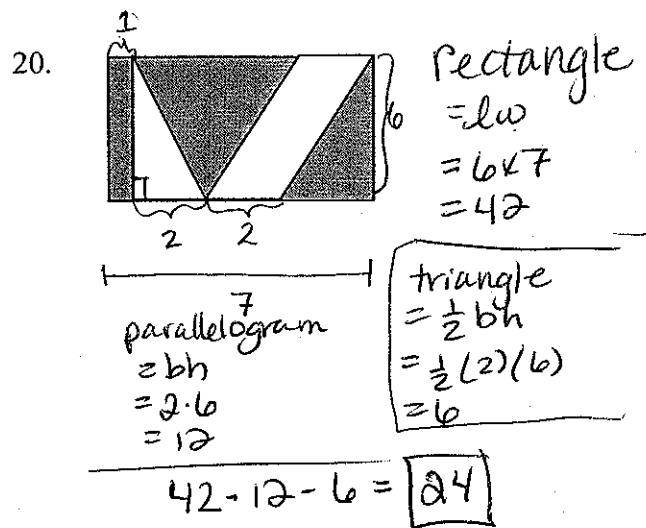 20.
1
6
2 2
7
rectangle
= lw
= 6x7
= 42
parallelogram
= bh
= 2·6
= 12
triangle
= 1/2 bh
= 1/2 (2)(6)
= 6
42 - 12 - 6 = 24